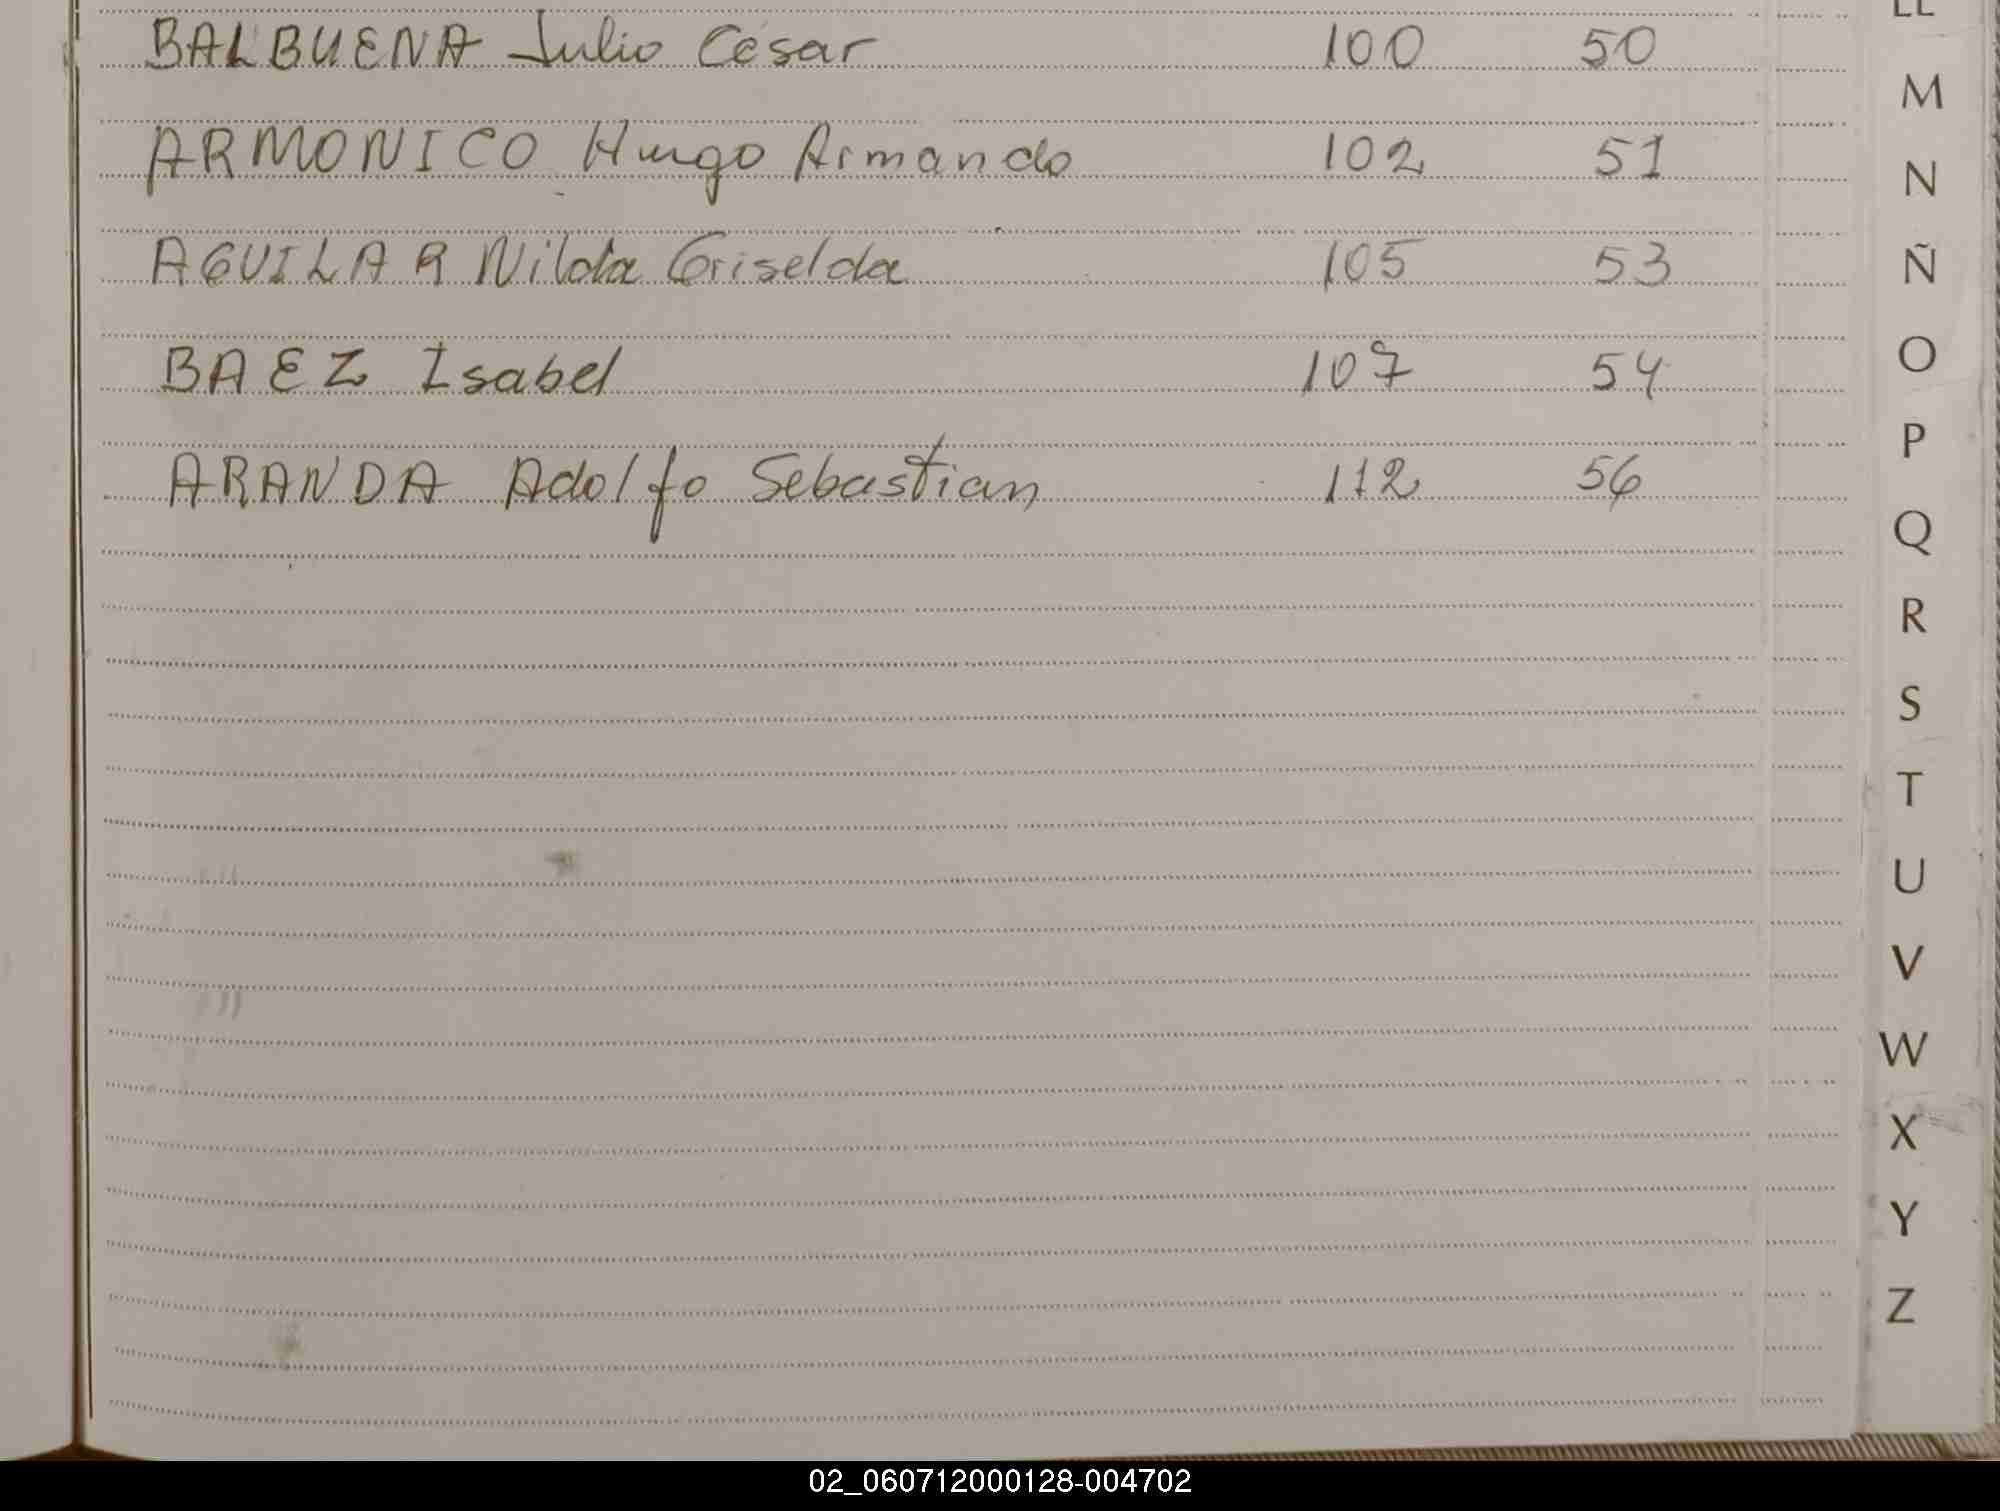 BALBUENA Julio César 100 50
ARMONICO Hugo Armando 102 51
AGUILAR Nilda Griselda 105 53
BAEZ Isabel 107 54
ARANDA Adolfo Sebastian 112 56
LL
M
N
Ñ
O
P
Q
R
S
T
U
V
W
X
Y
Z
02_060712000128-004702